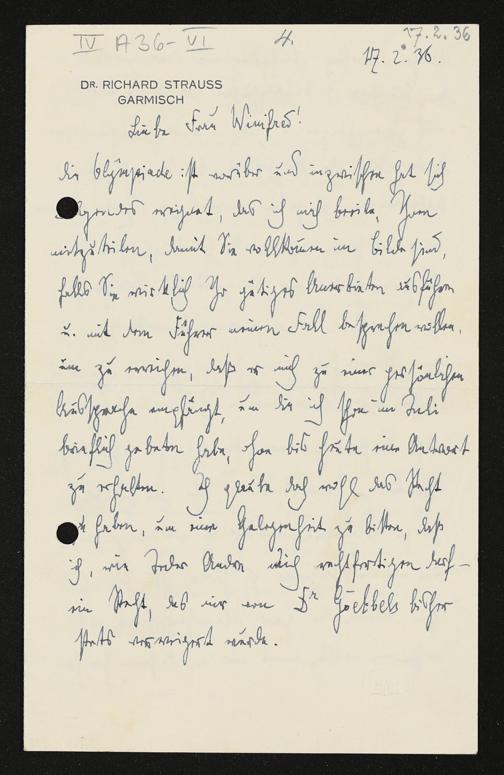 IV A36-VI 4. 17.2.36
17.2.36.
DR. RICHARD STRAUSS
GARMISCH
Liebe Frau Winifred!
die Olÿmpiade ist vorüber und inzwischen hat sich
folgendes ereignet, das ich mich beeile, Ihnen
mitzuteilen, damit Sie vollkommen im Bilde sind,
falls Sie wirklich Ihr gütiges Anerbieten ausführen
u. mit dem Führer meinen Fall besprechen wollen,
um zu erreichen, daß er mich zu einer persönlichen
Aussprache empfängt, um die ich schon im Juli
brieflich gebeten habe, ohne bis heute eine Antwort
zu erhalten. Ich glaube doch wohl das Recht
zu haben, um eine Gelegenheit zu bitten, daß
ich, wie Jeder Andre mich rechtfertigen darf –
ein Recht, das mir von Dr Göebbels bisher
stets verweigert wurde.